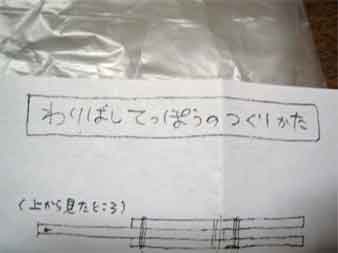 わりばしてっぽうのつくりかた
(上から見たところ)